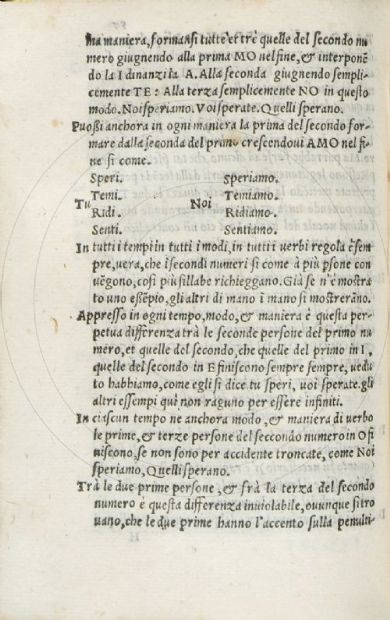 ma maniera, formansi tutte et trè quelle del secondo nu
mero giugnendo alla prima MO nel fine, & interponē
do la I dinanzi la A. Alla seconda giugnendo sempli-
cemente TE: Alla terza semplicemente NO in questo
modo. Noi speriamo. Voi sperate. Quelli sperano.
Puoßi anchora in ogni maniera la prima del secondo for-
mare dalla seconda del primo crescendoui AMO nel fi-
ne si come.
Speri. Speriamo.
Temi. Temiamo.
Tu Noi
Ridi. Ridiamo.
Senti. Sentiano.
In tutti i tempi in tutti i modi, in tutti i uerbi regola è sem
pre, uera, che i secondi numeri si come à più psone con
uēgono, cosi più sillabe richieggano. Già se n'è mostra
to uno esēpio, gli altri di mano ī mano si mostrerāno.
Appresso in ogni tempo, modo, & maniera è questa per-
petua differenza trà le seconde persone del primo nu
mero, et quelle del secondo, che quelle del primo in I,
quelle del secondo in E finiscono sempre sempre, uedu
to habbiamo, come egli si dice tu speri, uoi sperate. gli
altri essempi quì non raguno per essere infiniti.
In ciascun tempo ne anchora modo, & maniera di uerbo
le prime, & terze persone del seccondo numero in O fi
niscono, se non sono per accidente troncate, come Noi
speriamo, Quelli sperano.
Trà le due prime persone, & frà la terza del secondo
numero è questa differenza inuiolabile, ouunque si tro
uano, che le due prime hanno l'accento sulla penulti-